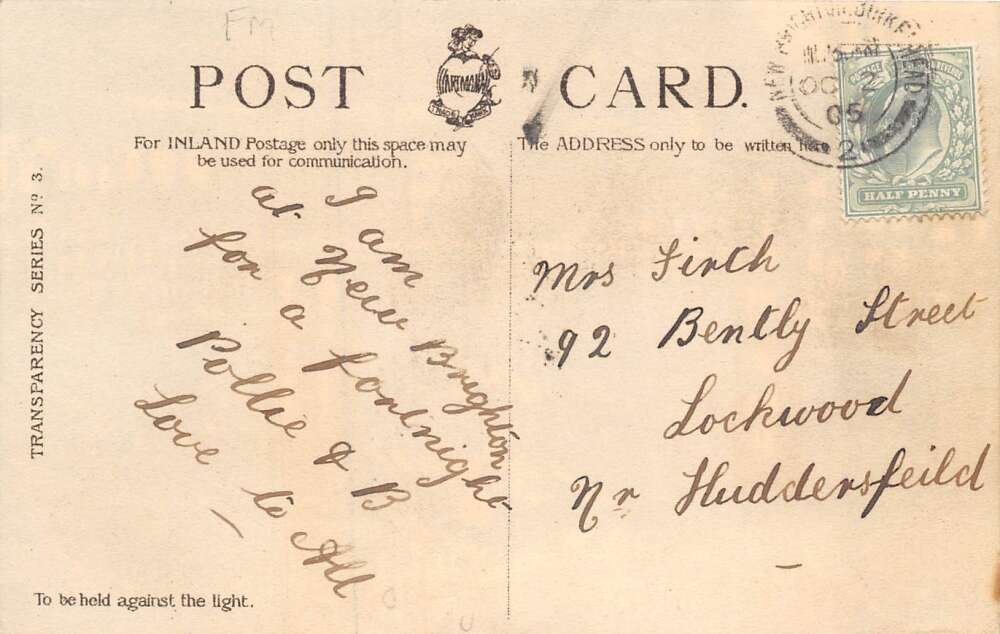 FM
POST CARD.
HARTMANN
TRADE MARK
For INLAND Postage only this space may
be used for communication.
The ADDRESS only to be written here
TRANSPARENCY SERIES Nº 3.
I am
at New Brighton
for a fortnight
Pollie & B
Love to All
To be held against the light.
NEW BRIGHTON. BIRKENHEAD
OC 2
05
2
POSTAGE
HALF PENNY
Mrs Firth
92 Bently Street
Lockwood
Nr Huddersfeild